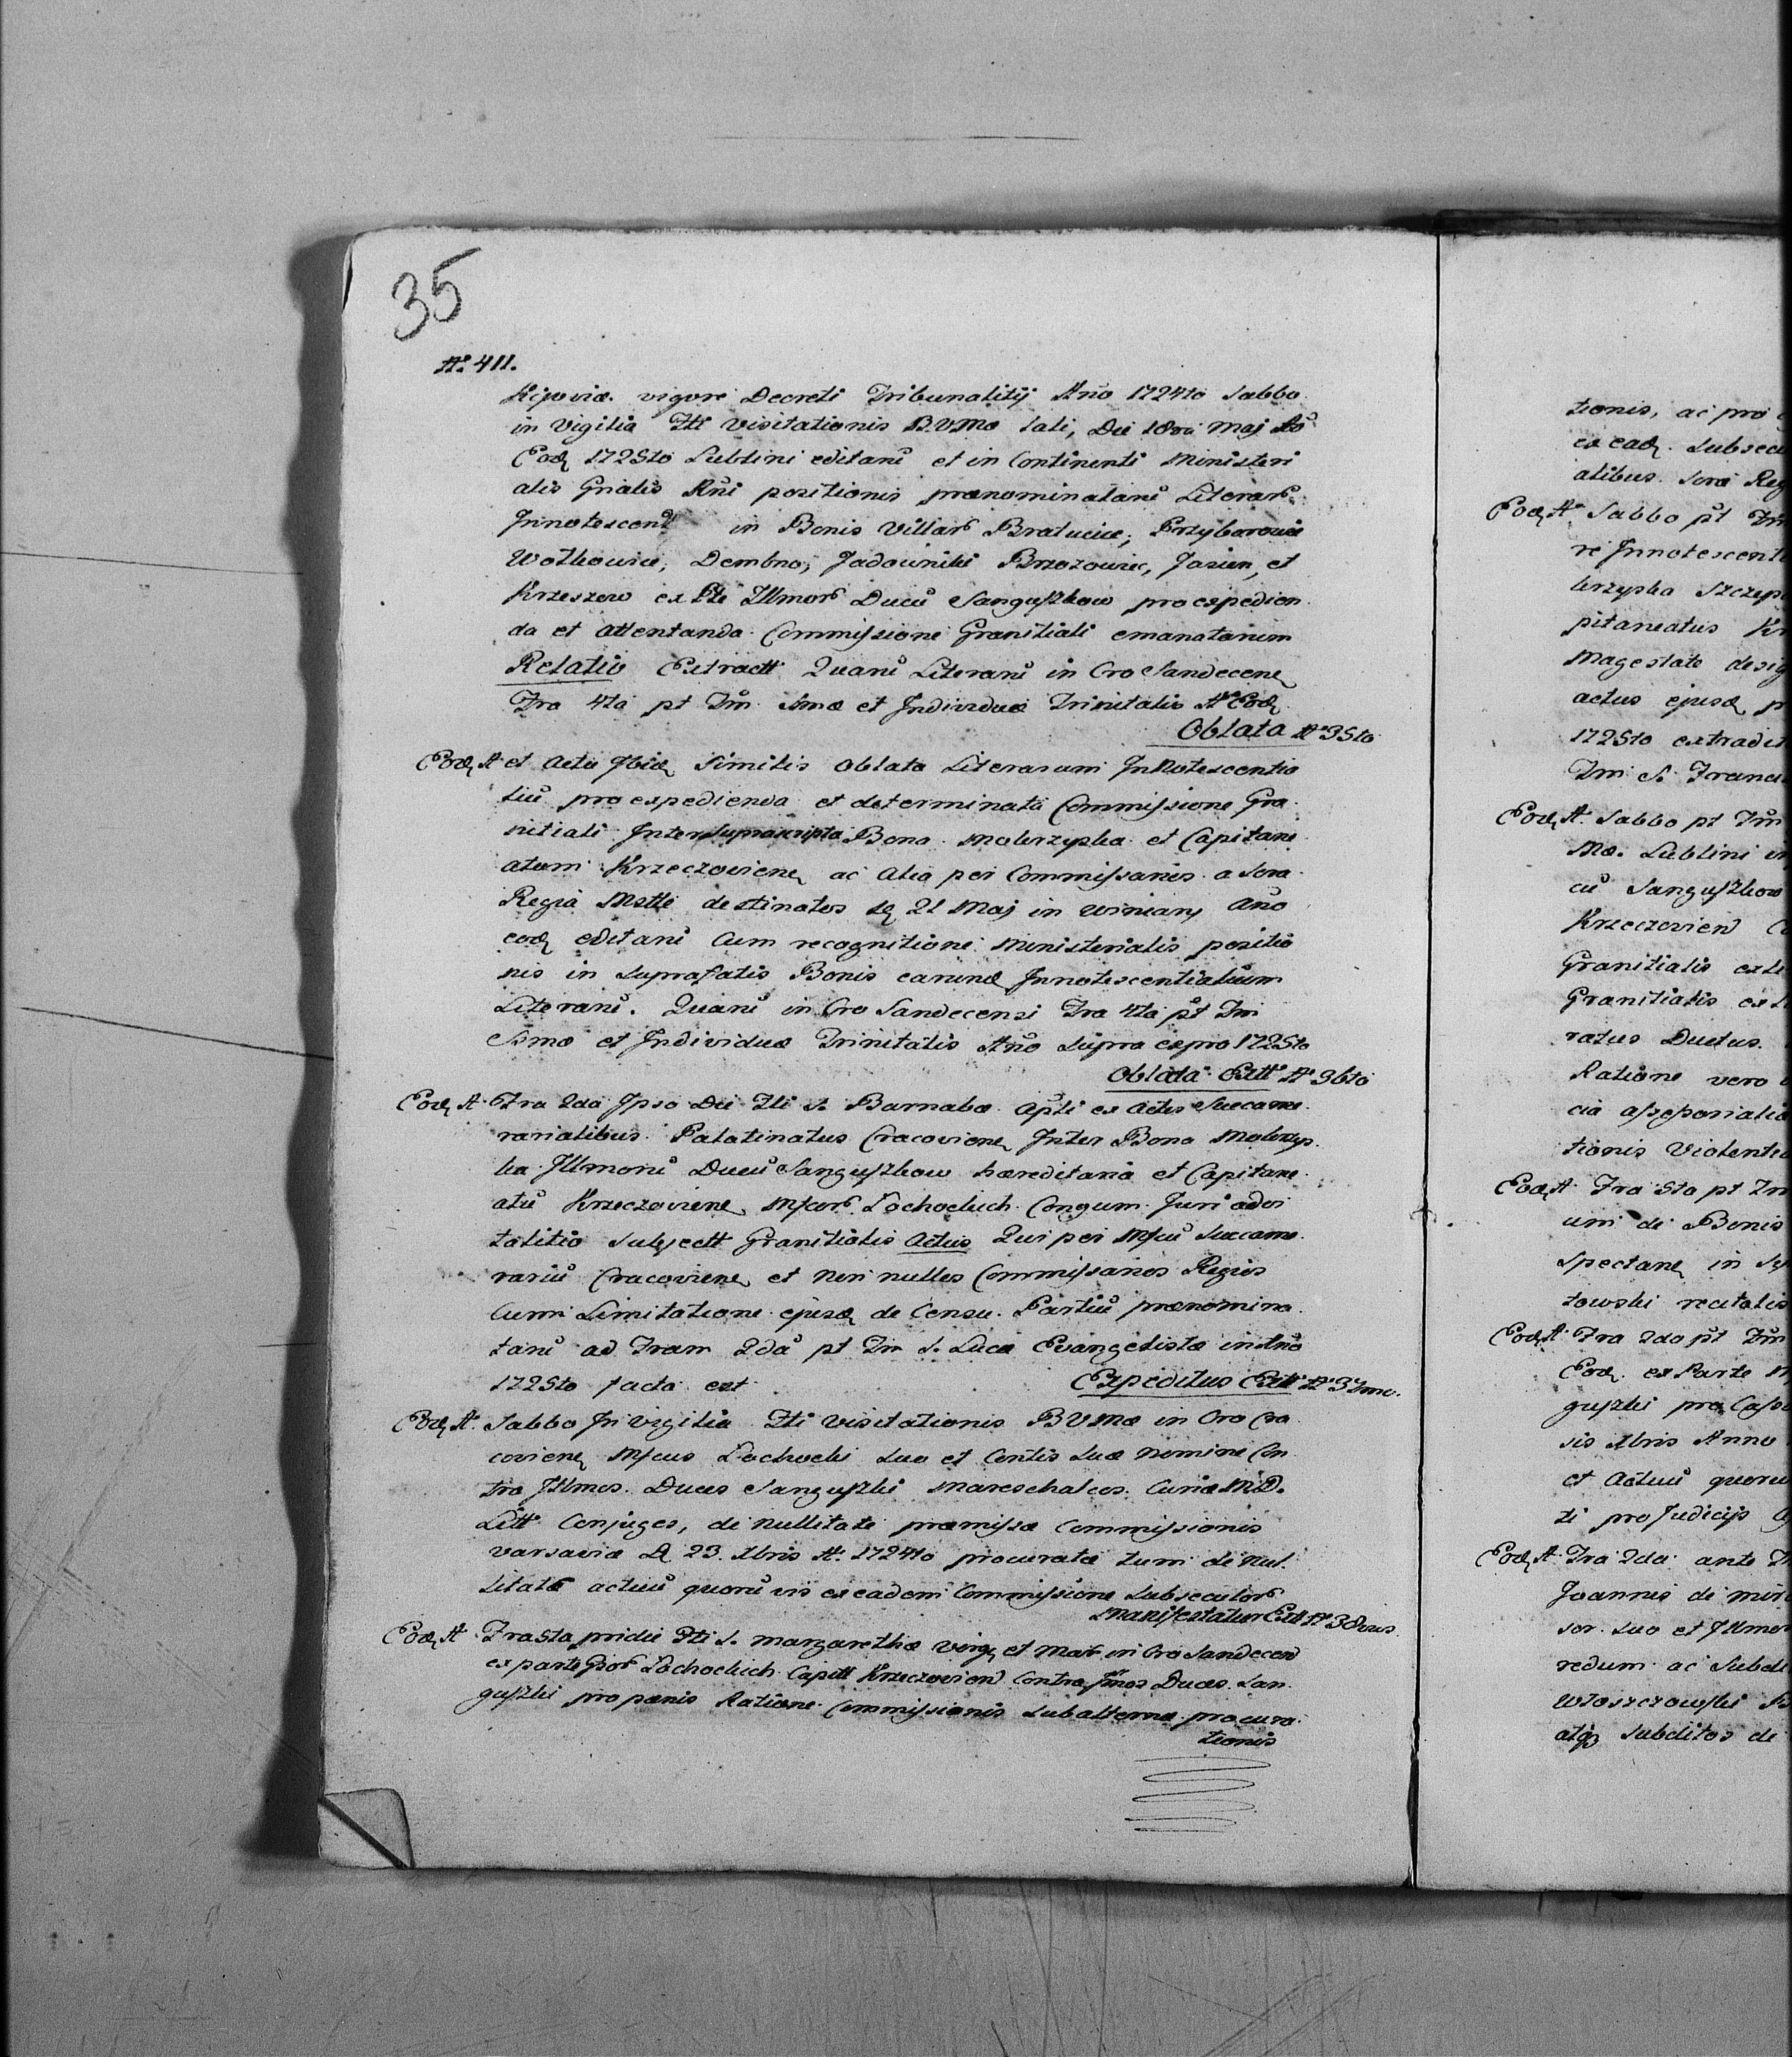 35
No. 411.
Kijoviæ vigore Decreti Tribunalitij Año 1724to Sabbo
in Vigilia Fti Visitationis B.V.Mæ lati, Die 18va Maj Ao
Eod 1725to Lublini editarū et in Continenti Ministeri
alis Gnalis Rñi positionis prænominatarū Literar
Innotescent in Bonis Villar Bratucice, Przyborowie
Wolkowice, Dembno, Jadowniki Brzozowiec, Jasien, et
Krzeszow ex Pte Illmor Ducū Sanguszkow pro expedien
da et attentanda Commissione Granitiali emanatarum
Relatio Extractt Quarū Literarū in Cro Sandecen
Fra 4ta pt Fm Smæ et Individuæ Trinitatis Ao Eod
Oblata No 35to
Eod A. et Actu Ibid Similis Oblata Literarum Innotescentia
liū pro expedienda et determinata Commissione Gra
nitiali Inter suprascripta Bona Mokrzyska et Capitane
atum Krzeczovien ac alia per Commissarios a Sera
Regia Mstte destinatos d 21 Maj in Winiary Año
eod editarū Cum recognitione Ministerialis positio
nis in suprafatis Bonis earund Innotescentialium
Literarū. Quarū in Cro Sandecensi Fra 4ta pt Fm
Ssmæ et Individuæ Trinitatis Año supra expro 1725to
Oblata Extt No 36to
Eod A. Fra 2da Ipso Die Fti S. Barnabæ Apli ex Actis Succame
rarialibus Palatinatus Cracovien Inter Bona Mokrzys
ka Illmorū Ducū Sanguszkow hæreditaria et Capitane
atū Krzeczovien Mfcor Lochockich Congum Juri advi
talitio subjectt Granitialis Actus Qui per Mfcū Succame
rariū Cracovien et non nullos Commissarios Regios
Cum Limitatione ejusd de Censu Partiū prænomina
tarū ad Fram 2dā pt Fm S. Lucæ Evangelistæ in Año
1725to facta est Expeditus Extt No 37mo.
Eod A. Sabbo In Vigilia Fti Visitationis BVMæ in Cro Cra
covien Mfcus Lochocki suo et Contis suæ nomine Con
tra Illmos Duces Sanguszki Mareschalcos Curiæ M.D.
Litt Conjuges, de Nullitate præmissæ Commissionis
Varsaviæ D 23. Xbris A. 1724to procuratæ tum de Nul
litate actuū quorū vis ex eadem Commissione subsecutor
Manifestatur Extt No 38vus
Eod A. Fra 5ta pridie Fti S. Margarethæ Virg et Mar in Cro Sandecen
ex parte Gsor Lochockich Capitt Krzeczovien Contra Illmos Duces San
guszki pro pœnis Ratione Commissionis Subalternæ procura
tionis
tionis, ac pro
ex ead. subsecu
alibus Seræ Reg
Eod A. Sabbo pt Fm
re Innotescent
krzyska Szczep
pitaneatus Kr
Magestate desig
actus ejusd p
1725to extradit
Fm S. Franci
Eod A. Sabbo pt Fm
Mæ. Lublini in
cū Sanguszkow
Krzeczovien C
Granitialis exte
Granitialis ex
ratus Ductus.
Ratione vero
cia assessorialia
tionis Violenti
Eod A. Fra 5ta pt Fm
um de Bonis
Spectan in
towski recitatis
Eod A. Fra 2da pt Fm
Eod. ex Parte M
guszki pro Cass
sis Xbris Anno
et Actuū quoru
ti pro Judicijs
Eod A. Fra 2da ante F
Joannis de
sor. suo et Illmor
redum ac Subdi
Wloszczowski
atq subditos de